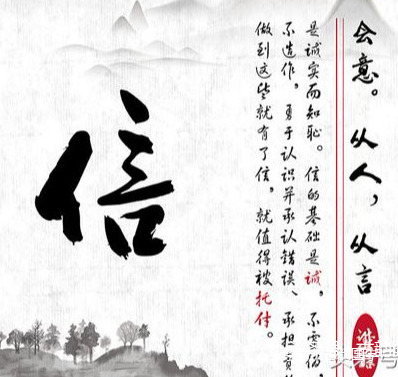 会意。从人，从言
是诚实而知耻。信的基础是诚，不雷同，
不造作，勇于认识并承认错误、承担责
做到这些就有了信，就值得被托付。
信